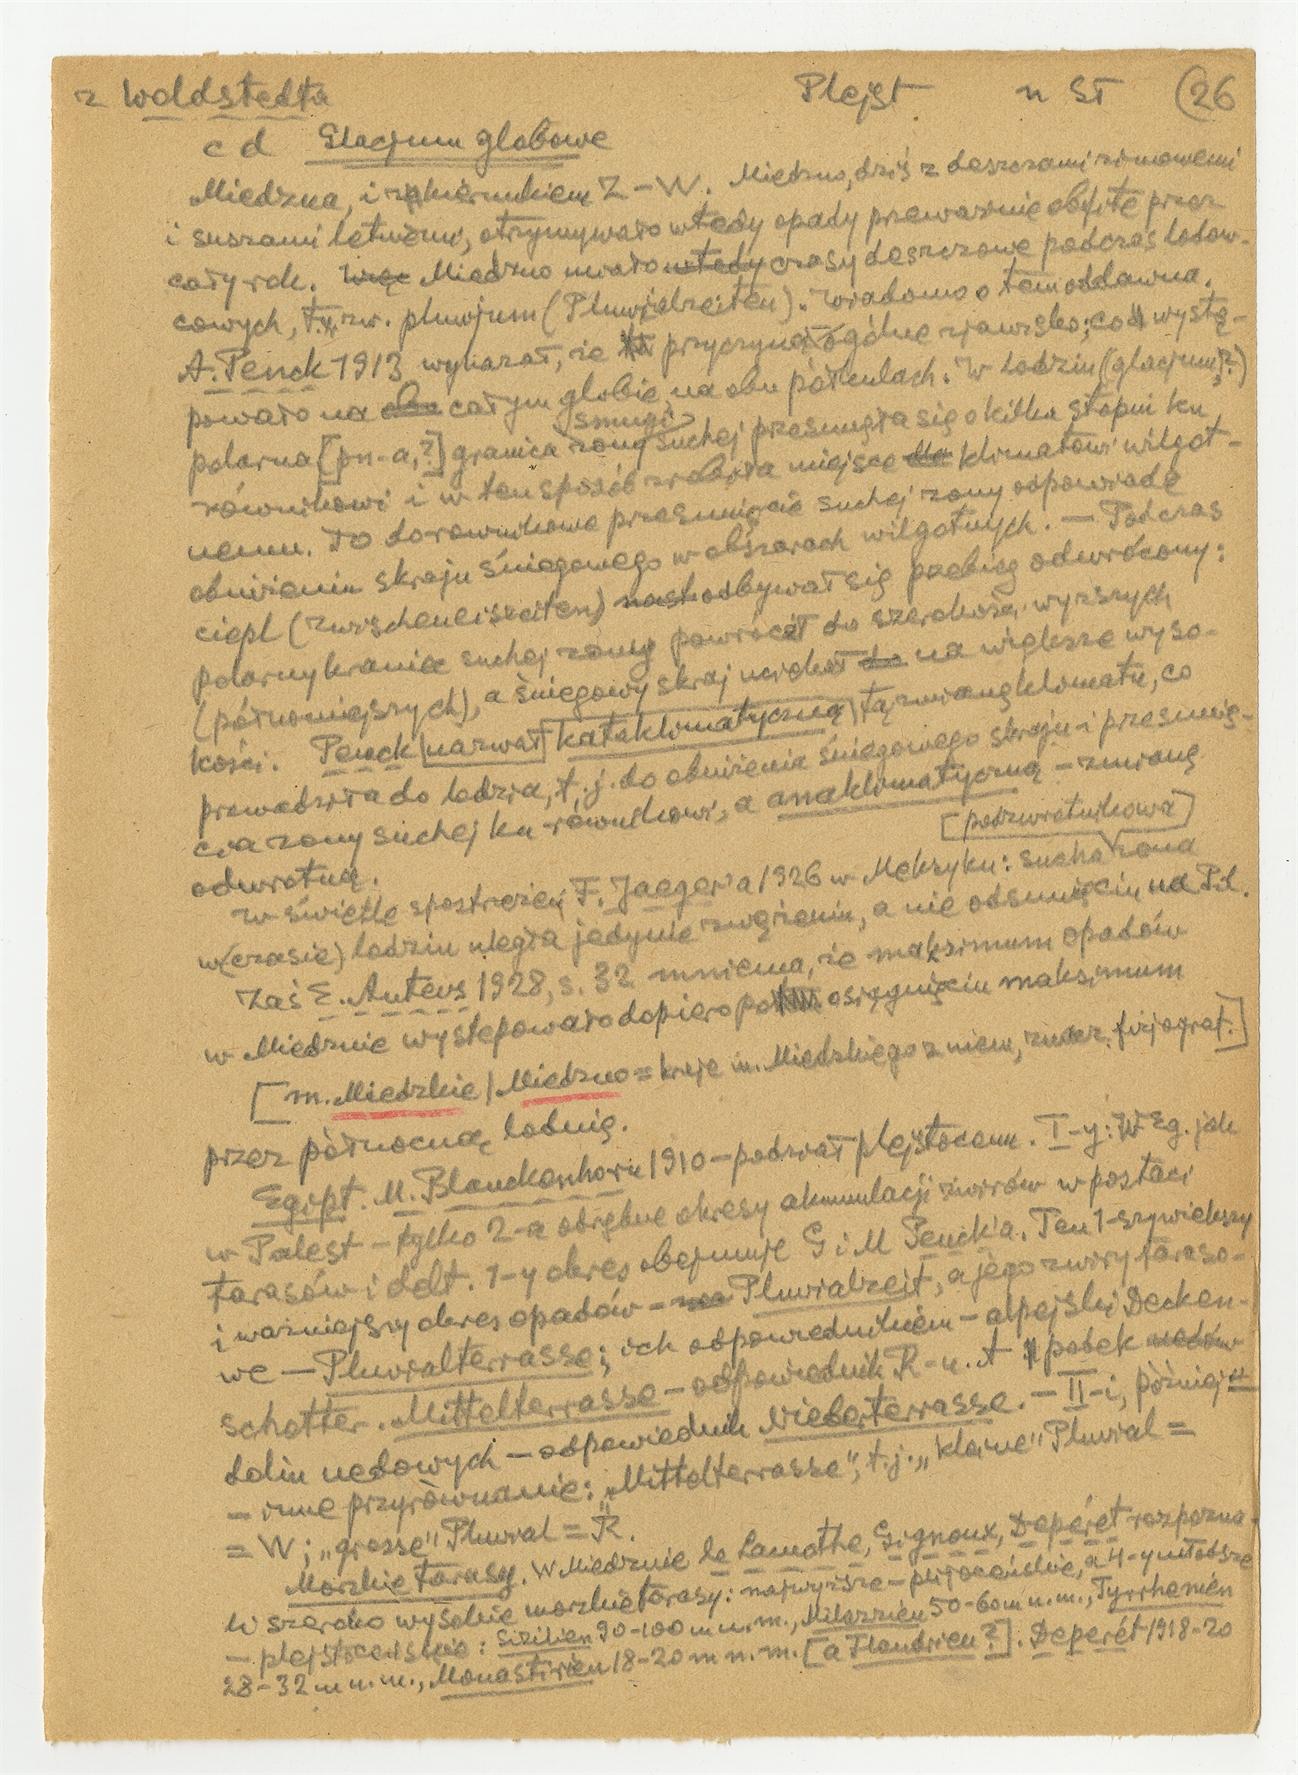 z Woldstedta Plejst n ST (26
c d Glacjum globowe
Miedzna, i z kierunkiem Z-W. Miedzno, dziś z deszczami zimowemi
i suszami letniemi, otrzymywało wtedy opady przeważnie obfite przez
cały rok. Więc Miedzno miało wtedy czasy deszczowe podczas lodow-
cowych, t. zw. pluwjum (Pluvialzeiten). Wiadomo o tem oddawna.
A. Penck 1913 wykazał, że przyczyna ogólne zjawisko; co wystę-
powało na całym globie, na obu półkulach. W lodziu (glacjum,?)
polarna [pn-a,?] granica zony smugi suchej przesunęła się o kilka stopni ku
równikowi i w ten sposób zrobiła miejsce klimatowi wilgot-
nemu. To dorównikowe przesunięcie suchej zony odpowiada
obniżeniu skraju śniegowego w obszarach wilgotnych. — Podczas
ciepl (Zwischeneiszeiten) odbywał się przebieg odwrócony:
polarny kraniec suchej zony powrócił do szerokości wyższych
(północniejszych), a śniegowy skraj uciekał do na większe wyso-
kości. Penck |nazwał| kataklimatyczną tą zmianę klimatu, co
prowadziła do lodzia, t. j. do obniżenia śniegowego skraju i przesunię-
cia zony suchej ku równikowi, a anaklimatyczną - zmianę
[podzwrotnikowa]
odwrotną.
W świetle spostrzeżeń F. Jaeger'a 1926 w Meksyku: sucha zona
w(czasie) lodziu uległa jedynie zwężeniu, a nie odsunięciu na Pd.
Zaś E. Antevs 1928, s. 32 mniema, że maksimum opadów
w Miedznie występowało dopiero po osiągnięciu maksimum
[m. Miedzkie / Miedzno = kraje m. Miedzkiego z niem, znacz. fizjograf.]
przez północną lodnię.
Egipt. M. Blanckenhorn 1910 - podział plejstocenu. I-y: W Eg. jak
w Palest - tylko 2-a odrębne okresy akumulacji żwirów w postaci
tarasów i delt. 1-y okres obejmuje G i M Penck'a. Ten 1-szy większy
i ważniejszy okres opadów - Pluvialzeit, a jego żwiry taraso-
we - Pluvialterrasse; ich odpowiednikiem - alpejski Decken-
schotter. Mittelterrasse - odpowiednik R-u. A potek
dolin uedowych - odpowiednik Niederterrasse. - II-i, później
- inne przyrównanie: „Mittelterrasse”, t. j. „kleine” Pluvial =
= W; „grosse” Pluvial = R.
Morskie tarasy. W Miedznie de Lamothe, Gignoux, Depéret rozpozna-
li szeroko wysokie morskie tarasy: najwyższe - plijoceńskie, a 4-y młodsze
- plejstoceńskie: Sizilien 90-100 m n. m., Milazzien 50-60 m n. m., Tyrrhenien
28-32 m n. m., Monastirien 18-20 m n. m. [a Flandrien?]. Depéret 1918-20